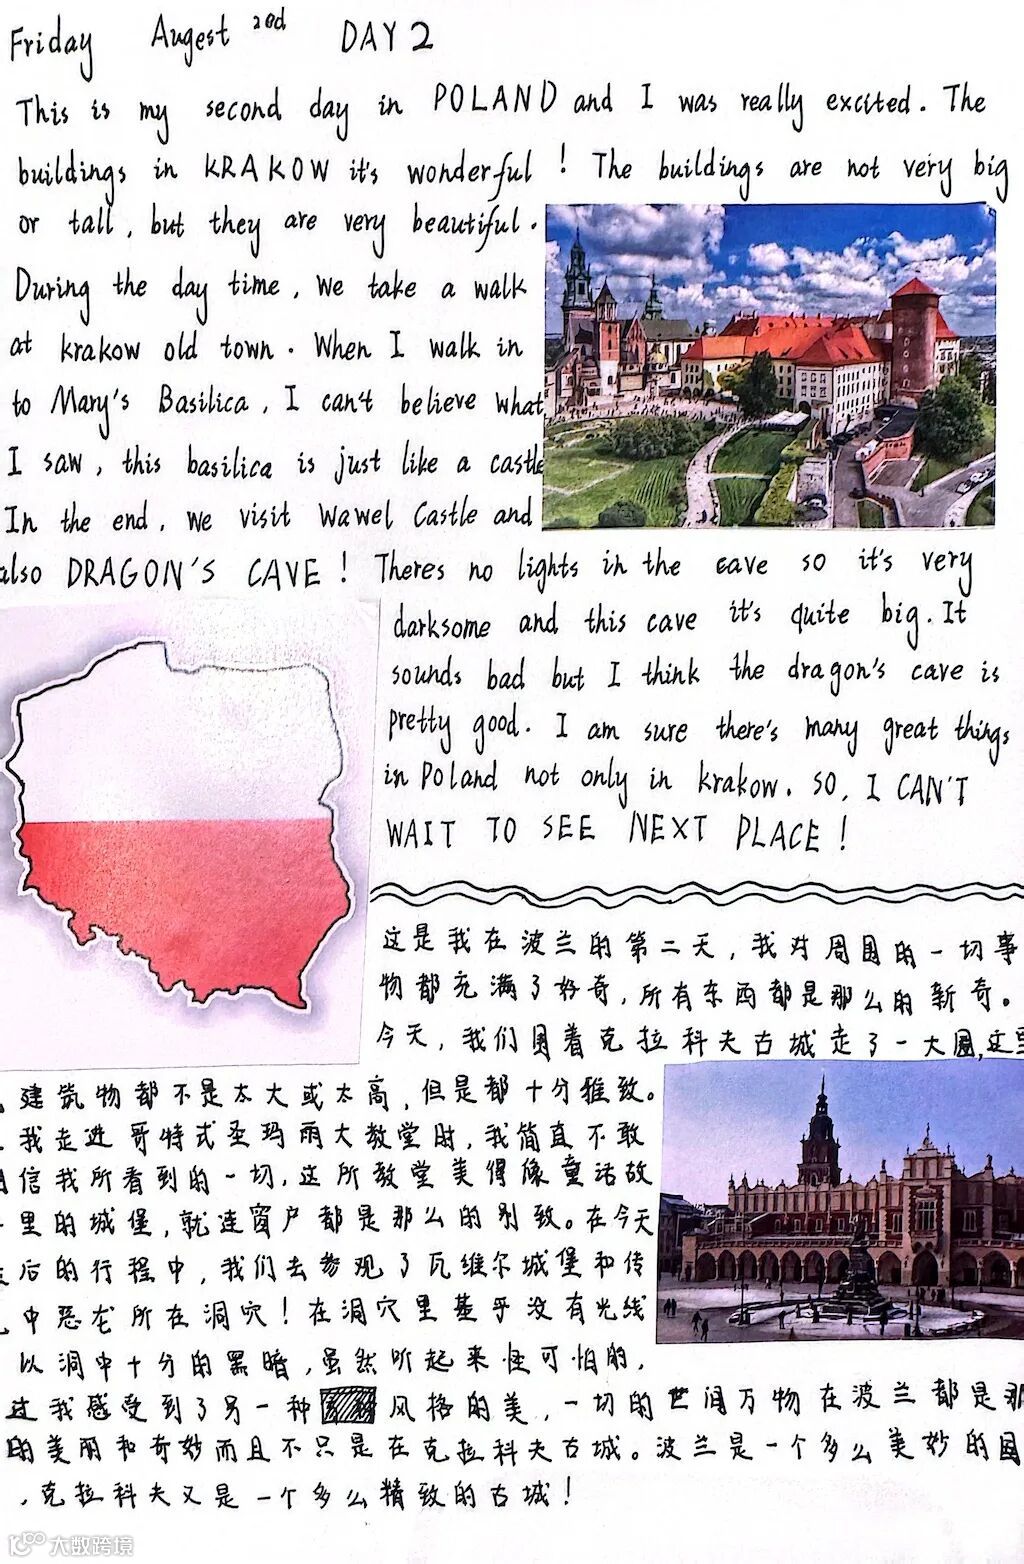 Friday Augest 2nd DAY 2
This is my second day in POLAND and I was really excited. The
buildings in KRAKOW it's wonderful ! The buildings are not very big
or tall, but they are very beautiful.
During the day time, we take a walk
at krakow old town. When I walk in
to Mary's Basilica, I can't believe what
I saw, this basilica is just like a castle
In the end, we visit Wawel Castle and
also DRAGON'S CAVE! Theres no lights in the cave so it's very
darksome and this cave it's quite big. It
sounds bad but I think the dragon's cave is
pretty good. I am sure there's many great things
in Poland not only in krakow. SO, I CAN'T
WAIT TO SEE NEXT PLACE!
这是我在波兰的第二天，我对周围的一切事
物都充满了好奇，所有东西都是那么的新奇。
今天，我们围着克拉科夫古城走了一大圈，这里
建筑物都不是太大或太高，但是都十分雅致。
我走进哥特式圣玛丽大教堂时，我简直不敢
信我所看到的一切，这所教堂美得像童话故
里的城堡，就连窗户都是那么的别致。在今天
后的行程中，我们去参观了瓦维尔城堡和传
中恶龙所在洞穴！在洞穴里基乎没有光线
以洞中十分的黑暗，虽然听起来怪可怕的，
过我感受到了另一种风格的美，一切的世间万物在波兰都是那
的美丽和奇妙而且不只是在克拉科夫古城。波兰是一个多么美妙的国
，克拉科夫又是一个多么精致的古城！
大数跨境